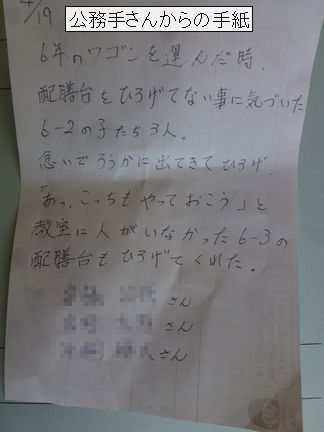 4/19
公務手さんからの手紙
6年のワゴンを運んだ時、
配膳台をひろげてない事に気づいた
6-2の子たち3人。
急いでろうかに出てきてひろげ、
「あっ、こっちもやっておこう」と
教室に人がいなかった6-3の
配膳台もひろげてくれた。
さん
さん
さん